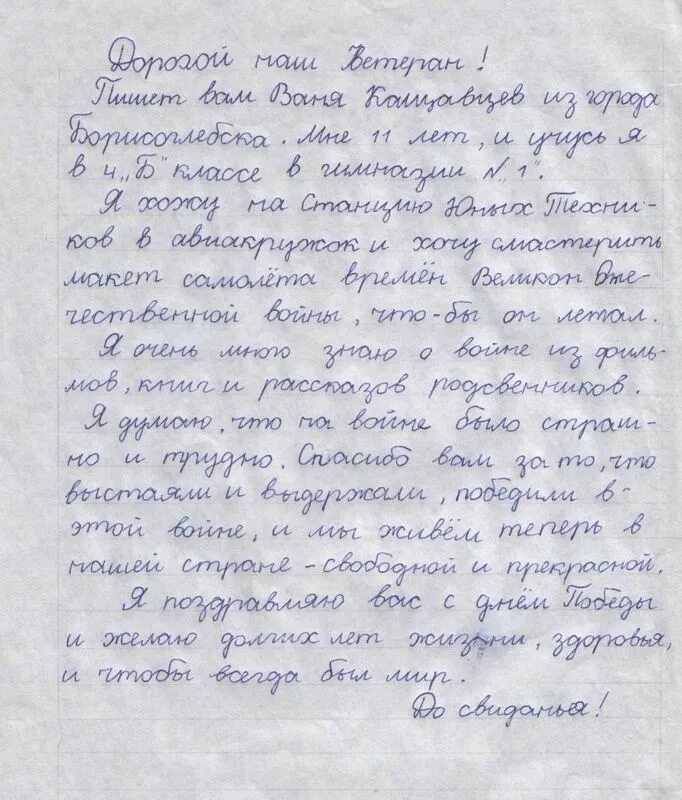 Дорогой наш Ветеран!
Пишет вам Ваня Кашавцев из города
Борисоглебска. Мне 11 лет, и учусь я
в 4 „Б" классе в гимназии №„1".
Я хожу на Станцию Юных Техни-
ков в авиакружок и хочу смастерить
макет самолёта времён Великой Оте-
чественной войны, что-бы он летал.
Я очень много знаю о войне из филь-
мов, книг и рассказов родсвенников.
Я думаю, что на войне было страш-
но и трудно. Спасибо вам за то, что
выстаяли и выдержали, победили в
этой войне, и мы живём теперь в
нашей стране - свободной и прекрасной.
Я поздравляю вас с днём Победы
и желаю долгих лет жизни, здоровья,
и чтобы всегда был мир.
До свиданья!